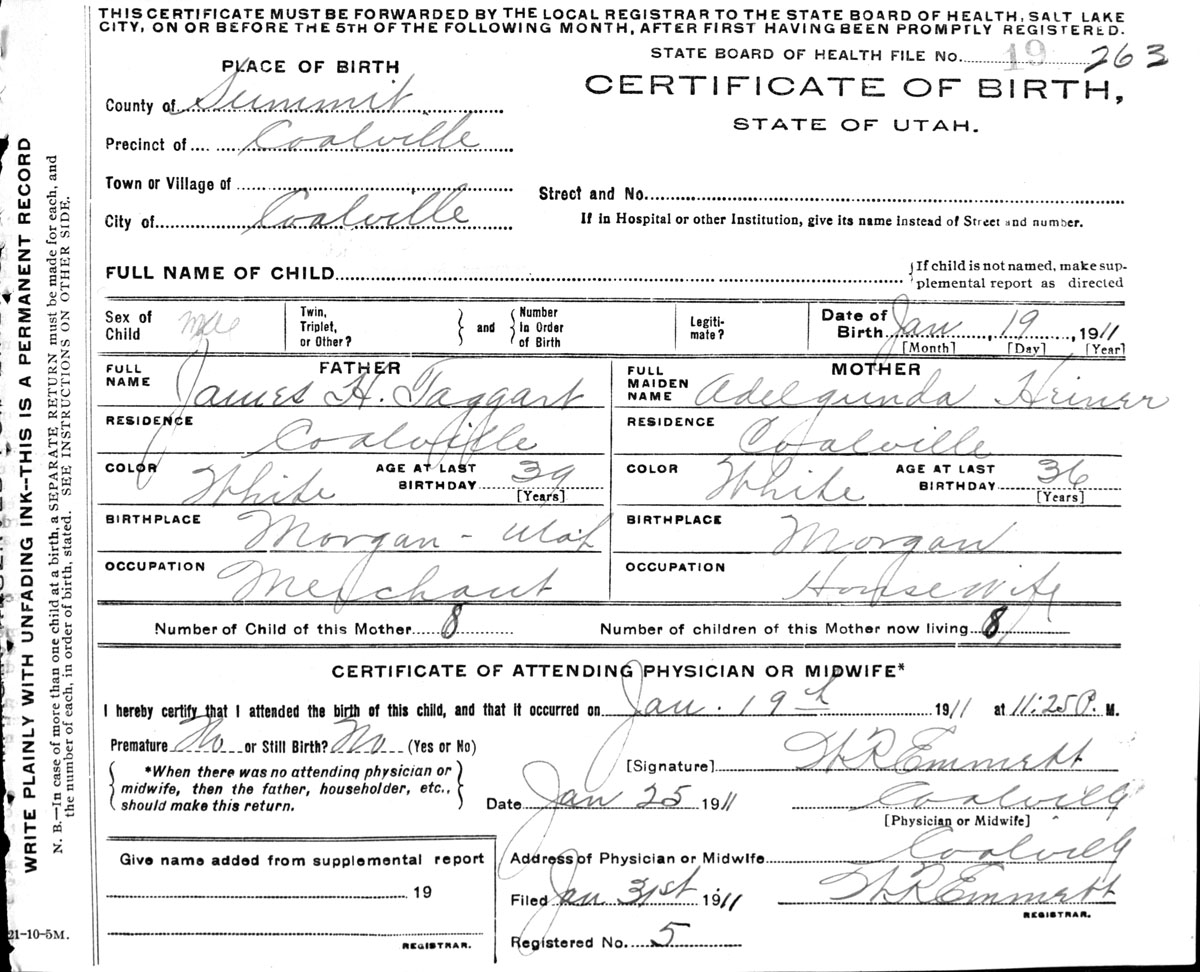 THIS CERTIFICATE MUST BE FORWARDED BY THE LOCAL REGISTRAR TO THE STATE BOARD OF HEALTH, SALT LAKE
CITY, ON OR BEFORE THE 5TH OF THE FOLLOWING MONTH, AFTER FIRST HAVING BEEN PROMPTLY REGISTERED.
STATE BOARD OF HEALTH FILE No. 19 263
PLACE OF BIRTH
CERTIFICATE OF BIRTH,
STATE OF UTAH.
County of Summit
Precinct of Coalville
Town or Village of
Street and No.
City of Coalville
If in Hospital or other Institution, give its name instead of Street and number.
FULL NAME OF CHILD
{If child is not named, make sup-
plemental report as directed
Sex of Child Male
Twin, Triplet, or Other?
and
Number in Order of Birth
Legiti-mate?
Date of Birth Jan 19, 1911
[Month] [Day] [Year]
FATHER
FULL NAME James H. Taggart
MOTHER
FULL MAIDEN NAME Adelgunda Heiner
RESIDENCE Coalville
RESIDENCE Coalville
COLOR White AGE AT LAST BIRTHDAY 39 [Years]
COLOR White AGE AT LAST BIRTHDAY 36 [Years]
BIRTHPLACE Morgan - Utah
BIRTHPLACE Morgan
OCCUPATION Merchant
OCCUPATION Housewife
Number of Child of this Mother 8 Number of children of this Mother now living 8
CERTIFICATE OF ATTENDING PHYSICIAN OR MIDWIFE*
I hereby certify that I attended the birth of this child, and that it occurred on Jan. 19th 1911 at 11:25 P. M.
Premature No or Still Birth? No (Yes or No)
[Signature] W R Emmett
*When there was no attending physician or
midwife, then the father, householder, etc.,
should make this return.
Date Jan 25 1911 Coalville
[Physician or Midwife]
Give name added from supplemental report
19
REGISTRAR.
Address of Physician or Midwife Coalville
Filed Jan 31st 1911 W R Emmett
REGISTRAR.
Registered No. 5
21-10-5M.
WRITE PLAINLY WITH UNFADING INK--THIS IS A PERMANENT RECORD
N. B.—In case of more than one child at a birth, a SEPARATE RETURN must be made for each, and
the number of each, in order of birth, stated. SEE INSTRUCTIONS ON OTHER SIDE.